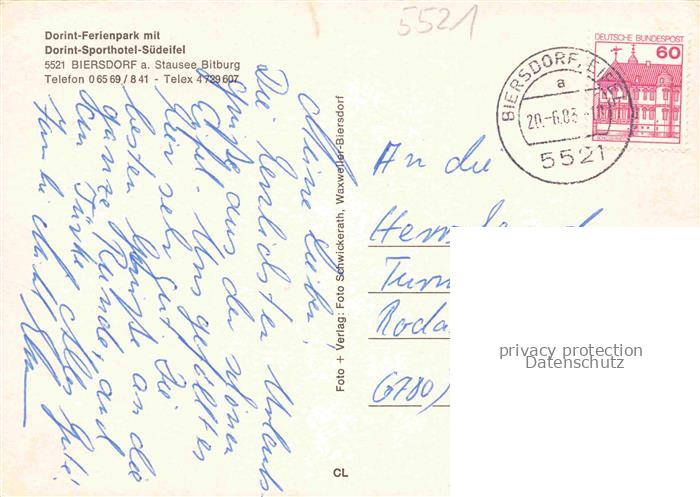 5521
Dorint-Ferienpark mit
Dorint-Sporthotel-Südeifel
5521 BIERSDORF a. Stausee Bitburg
Telefon 0 65 69 / 8 41 - Telex 4 729 607
DEUTSCHE BUNDESPOST
60
BIERSDORF, EIFEL
a
20.-6.83
5521
Meine Lieben!
Die herzlichsten Urlaubs-
grüße aus der schönen
Eifel. Uns gefällt es
hier sehr gut. Die
besten Grüße an die
ganze Runde, auch
Alles Gute!
Foto + Verlag: Foto Schwickerath, Waxweiler-Biersdorf
CL
An die
Turn
Roda
6780
privacy protection
Datenschutz